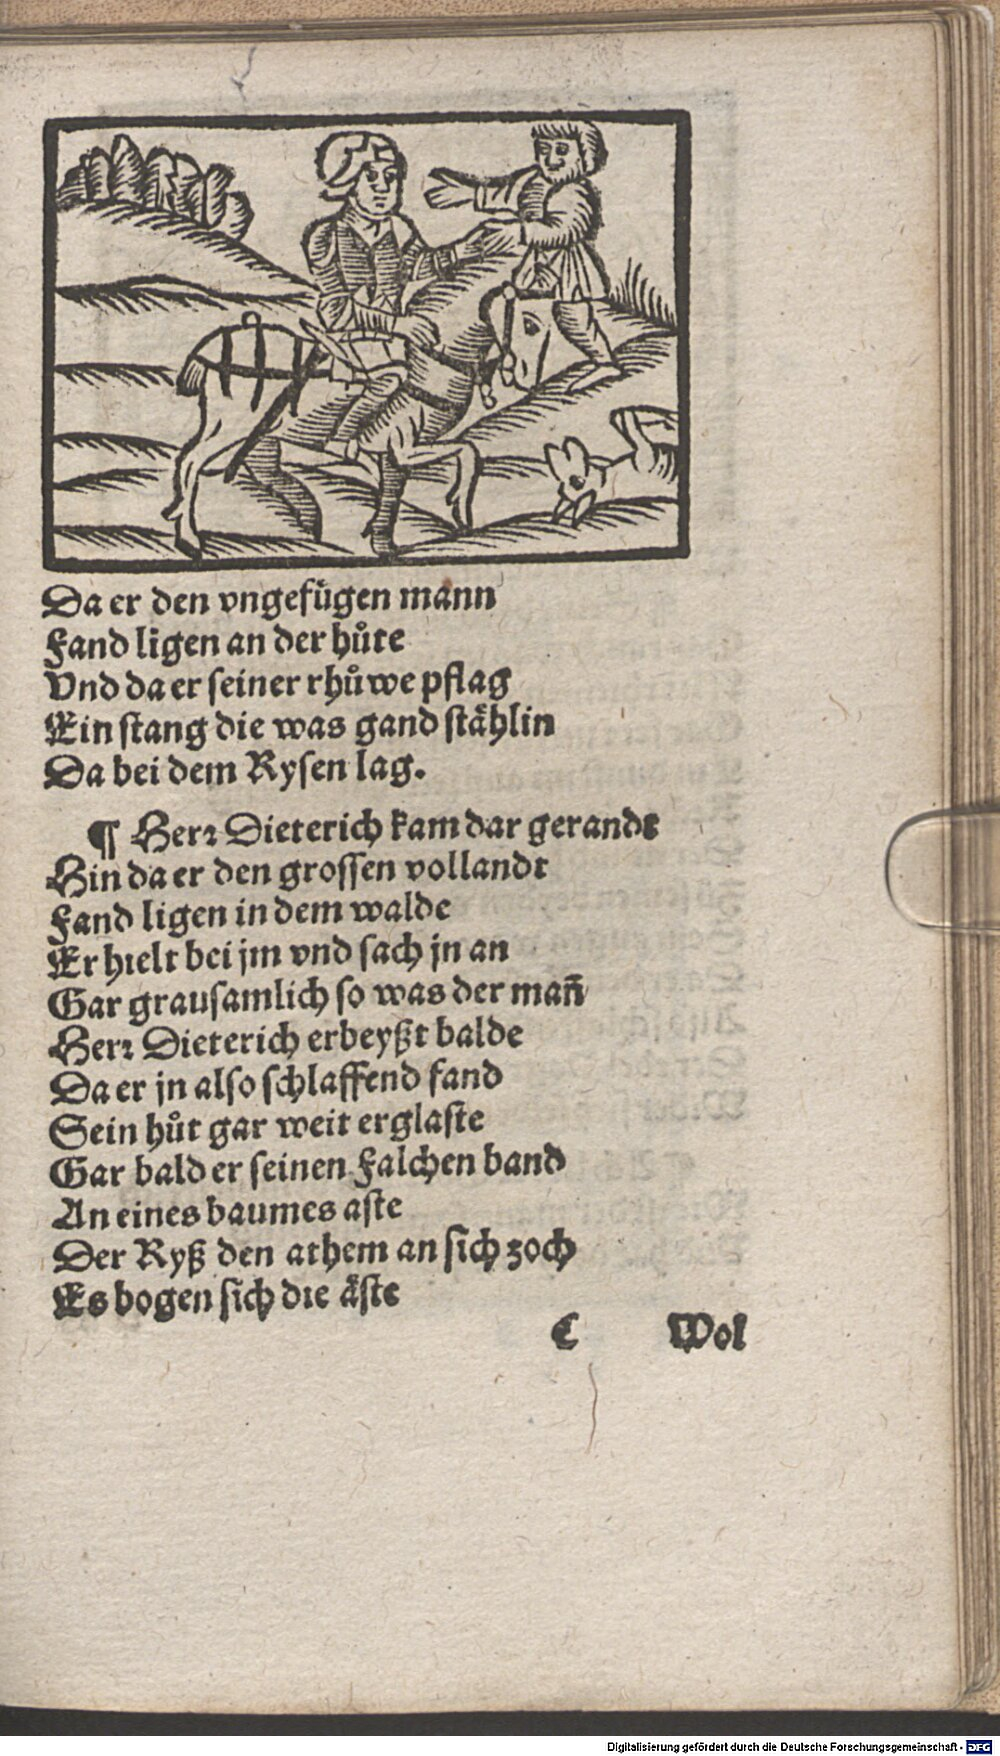 Da er den vngefügen mann
Fand ligen an der hůte
Vnd da er seiner rhůwe pflag
Ein stang die was gand stählin
Da bei dem Rysen lag.
¶ Herꝛ Dieterich kam dar gerandt
Hin da er den grossen vollandt
Fand ligen in dem walde
Er hielt bei jm vnd sach jn an
Gar grausamlich so was der mañ
Herꝛ Dieterich erbeyßt balde
Da er jn also schlaffend fand
Sein hůt gar weit erglaste
Gar bald er seinen Falchen band
An eines baumes aste
Der Ryß den athem an sich zoch
Es bogen sich die äste
C Wol
Digitalisierung gefördert durch die Deutsche Forschungsgemeinschaft - DFG